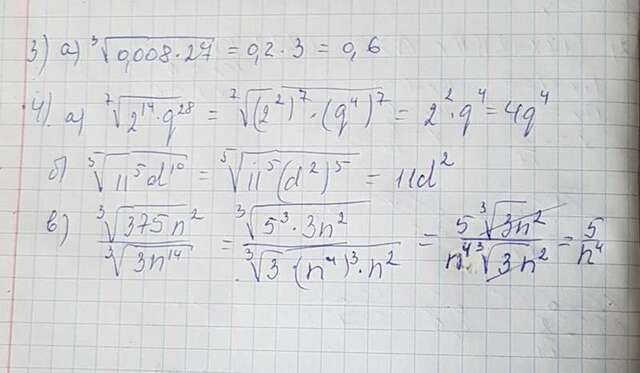 3) а) ∛(0,008·27) = 0,2·3 = 0,6
4) а) ⁷√(2¹⁴·q²⁸) = ⁷√((2²)⁷·(q⁴)⁷) = 2²·q⁴ = 4q⁴
б) ⁵√(11⁵d¹⁰) = ⁵√(11⁵(d²)⁵) = 11d²
в) ∛(375n²)/∛(3n¹⁴) = ∛(5³·3n²)/∛(3·(n⁴)³·n²) = 5∛(3n²)/n⁴∛(3n²) = 5/n⁴